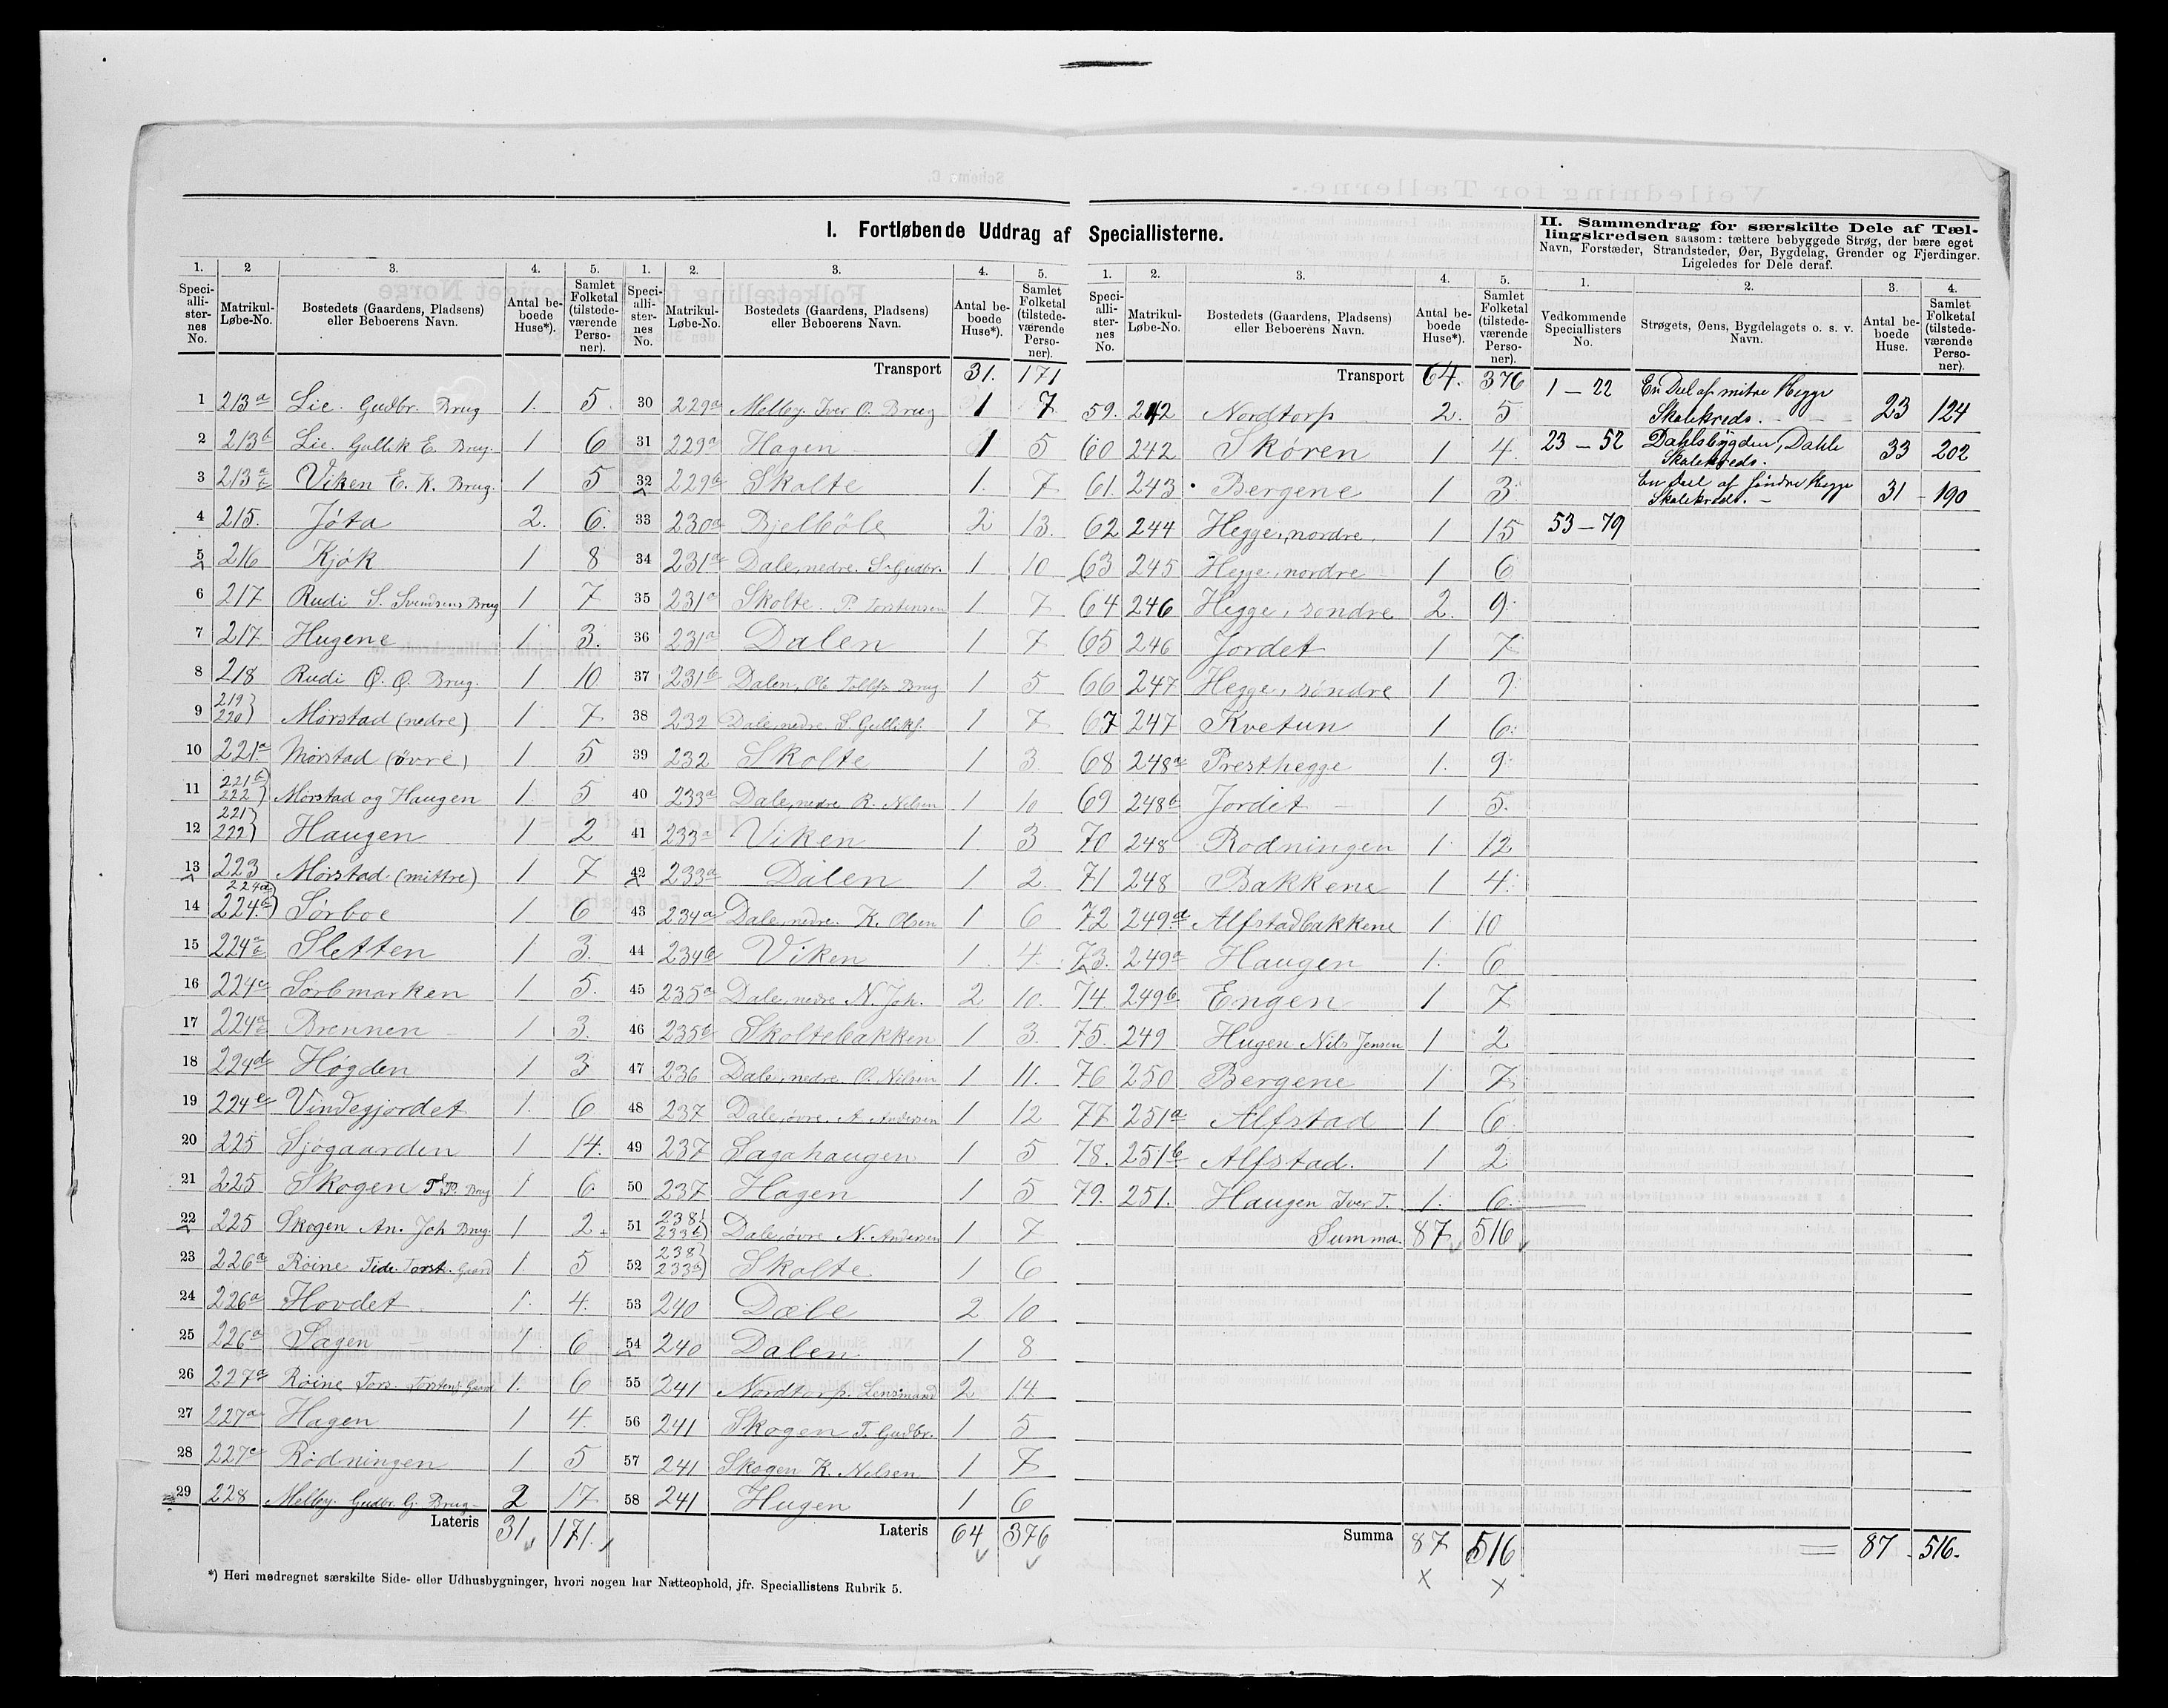 I. Fortløbende Uddrag af Speciallisterne.
1. 2 3. 4. 5.
Speciallisternes No. Matrikul-Løbe-No. Bostedets (Gaardens, Pladsens) eller Beboerens Navn. Antal beboede Huse*). Samlet Folketal (tilstedeværende Personer).
1 213a Lie. Gudbr. Brug 1. 5
2 213b Lie. Gullik E. Brug. 1 6
3 213 Viken E. K. Brug. 1 5
4 215. Jóta 2. 6.
5 216 Kjøk 1 8
6 217 Rudi S. Svendsens Brug 1 7
7 217. Hugene 1 3.
8 218 Rudi O. O. Brug. 1 10
9 219 220) Mørstad (nedre) 1 7
10 221a Mørstad (øvre) 1 5
11 221b 222) Mørstad og Haugen 1. 5
12 221) 222) Haugen 1 2
13 223 Mørstad (mittre) 1 7
14 224a 224b) Sørboe 1 6
15 224a b Sletten 1 3.
16 224c Sørbmarken 1 5.
17 224a b Brennen 1 3.
18 224d Høgden 1 3
19 224e Vindegjordet 1. 6
20 225 Sjøgaarden 1 14.
21 225 Skogen T. P. Brug 1 6
22 225 Skogen An. Joh Brug. 1 2
23 226a Røine Tide Torst. Gaard 1. 5
24 226a Hovdet 1. 4.
25 226a Sagen 1. 6
26 227a Røine Tors. Torstens Gaard 1. 6
27 227a Hagen 1 4.
28 227c Rødningen 1 5
29 228 Melby. Gudbr. G. Brug 2 17
Lateris 31 171.
1. 2. 3. 4. 5.
Speciallisternes No. Matrikul-Løbe-No. Bostedets (Gaardens, Pladsens) eller Beboerens Navn. Antal beboede Huse*). Samlet Folketal (tilstedeværende Personer).
Transport 31. 171
30 229a Melby. Iver O. Brug 1 7
31 229a Hagen 1 5
32 229b Skolte 1. 7
33 230a Bjelbøle 2 13.
34 231a Dale, nedre. S. Gudbr. 1. 10
35 231a Skolte. P. Torstensen 1. 7
36 231a Dalen 1 7
37 231b Dalen, Ole Tollfs Brug 1 5
38 232 Dale, nedre S. Gulliks. 1 7
39 232 Skolte 1 3
40 233a Dale, nedre R. Nilsen 1 10
41 233a Viken 1. 3
42 233a Dalen 1 2.
43 234a Dale, nedre. K. Olsen 1 6
44 234b Viken 1. 4.
45 235a Dale, nedre N. Joh. 2 10.
46 235b Skoltebakken 1 3.
47 236 Dale, nedre O. Nilsen 1 11.
48 237 Dale, øvre. A Andersen 1 12
49 237 Sagahaugen 1 5
50 237 Hagen 1 5
51 238) 233b) Dale, øvre N. Andersen 1 7
52 238) 233b) Skolte 1 6
53 240 Dæle 2 10
54 240 Dalen 1 8
55 241 Nordtorp. Lensmand 2 14
56 241 Skogen T. Gudbr. 1. 5
57 241 Skogen K. Nilsen 1 7
58 241 Hugen 1 6
Lateris 64 376
1. 2. 3. 4. 5.
Speciallisternes No. Matrikul-Løbe-No. Bostedets (Gaardens, Pladsens) eller Beboerens Navn. Antal beboede Huse*). Samlet Folketal (tilstedeværende Personer).
Transport 64. 376
59. 242 Nordtorp 2. 5
60 242 Skøren 1 4.
61. 243 Bergene 1 3
62 244 Hegge, nordre. 1 15
63 245 Hegge, nordre 1 6
64 246 Hegge, søndre 2. 9.
65 246 Jordet 1 7
66 247 Hegge, søndre 1 9
67 247 Kvetun 1 6.
68 248a Presthegge 1. 9
69 248b Jordet 1 5.
70 248 Rodningen 1. 12
71 248 Bakkene 1 4.
72 249a Alfstadbakkene 1. 10
73. 249a Haugen 1. 6
74. 249b Engen 1 7
75. 249 Hugen Nils Jensen 1 2
76 250 Bergene 1 7
77 251a Alfstad 1 6
78. 251b Alfstad. 1 2
79. 251. Haugen Iver T. 1. 6.
Summa. 87 516
Summa 87 516
II. Sammendrag for særskilte Dele af Tællingskredsen saasom: tættere bebyggede Strøg, der bære eget Navn, Forstæder, Strandsteder, Øer, Bygdelag, Grender og Fjerdinger. Ligeledes for Dele deraf.
1. 2. 3. 4.
Vedkommende Speciallisters No. Strøgets, Øens, Bygdelagets o. s. v. Navn. Antal beboede Huse. Samlet Folketal (tilstedeværende Personer).
1 — 22 En Deel af mitre Hegge Skolekreds. 23 124
23 — 52 Dahlsbygden, Dahle Skolekreds. 33 202
En Deel af søndre Hegge Skolekreds. 31 190
53 — 79
87 516.
*) Heri medregnet særskilte Side- eller Udhusbygninger, hvori nogen har Natteophold, jfr. Speciallistens Rubrik 5.